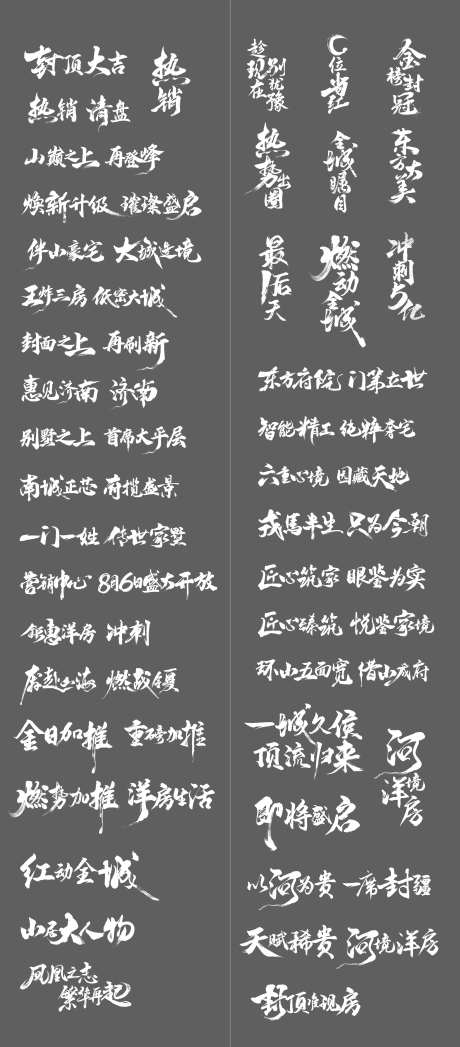 封顶大吉
热销
热销 清盘
山巅之上 再登峰
焕新升级 璀璨盛启
伴山豪宅 大城造境
王炸三房 低密大城
封面之上 再刷新
惠见济南 济南
别墅之上 首席大平层
南城正芯 府揽盛景
一门一姓 传世家墅
营销中心 8月6日盛大开放
钜惠洋房 冲刺
奔赴山海 燃战夏
金日加推 重磅加推
燃势加推 洋房生活
红动全城
山居大人物
凤凰之志
繁华再起
趁现在
别犹豫
C位当红
金榜封冠
热势出圈
全城瞩目
东方大美
最后一天
燃动全城
冲刺5亿
东方府院 门第立世
智能精工 纯粹奢宅
六重心境 因藏天地
戎馬半生 只为今朝
匠心筑家 眼鉴为实
匠心臻筑 悦鉴家境
环山五面宽 借山成府
一城久候
顶流归来
河境
洋房
即将盛启
以河为贵 一席封疆
天赋稀贵 河境洋房
封顶唯现房